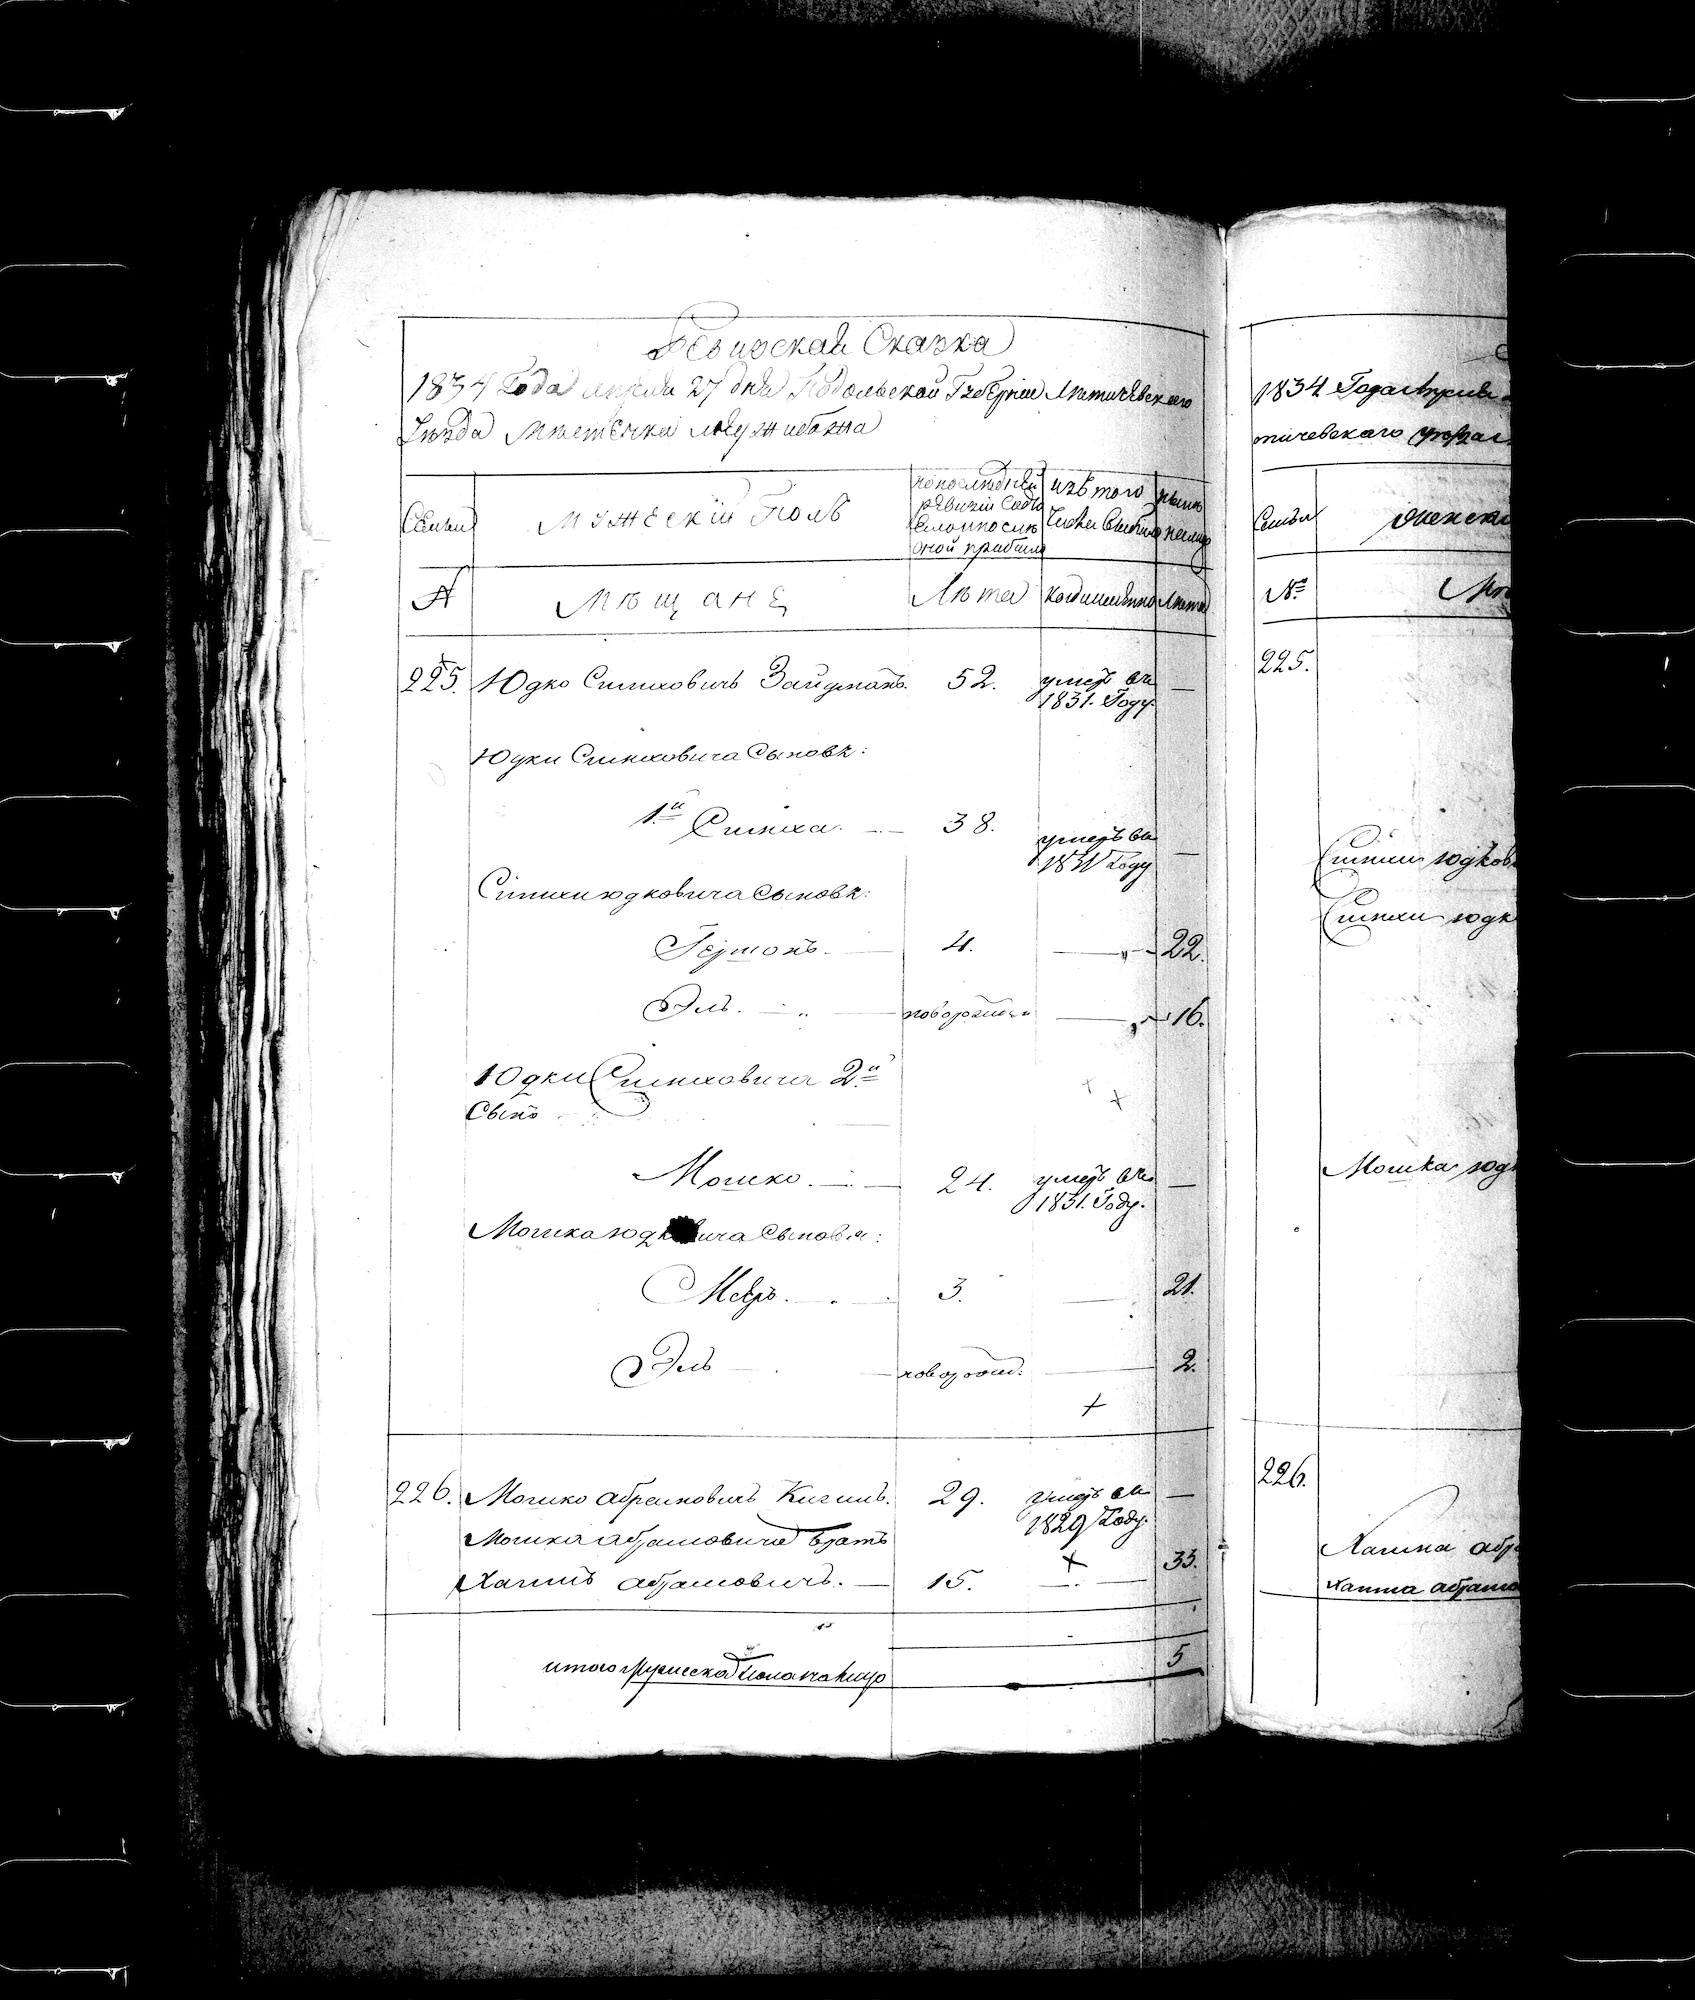 Ревизская Сказка
1834 Года апреля 27 дня Подольской Губернии Летичевскаго
Уезда местечка Меджибожа
Семьи
Мужеский Полъ
По последней ревизіи состояло и после оной прибыло
Изъ того числа выбыло
Ныне на лицо
№
Мещане
Лета
Когда именно
Лета
225. Юдко Симховичъ Зайдманъ. 52. умеръ въ 1831. Году —
Юдки Симховича Сыновья:
1.й Симха. — 38. умеръ въ 1831 Году —
Симхи Юдковича Сыновья:
Гершонъ. — 4. — 22.
Эль. — новорожден — 16.
Юдки Симховича 2.й
Сынъ
Мошко. — 24. умеръ въ 1831. Году. —
Мошка Юдковича Сыновья:
Мееръ. — 3. — 21.
Эль — новорожд: — 2.
226. Мошко Абрамовичъ 29. умеръ въ 1829 Году. —
Мошка Абрамовича Братъ
Хаимъ Абрамовичъ. — 15. — 33.
итого мужеска пола налицо 5
1834 Года Апреля
тичевскаго
Семьи
Женски
№
225.
Симхи Юдков
Симхи Юдк
Мошка Юд
226.
Хаима Абр
Хаима Абрамо